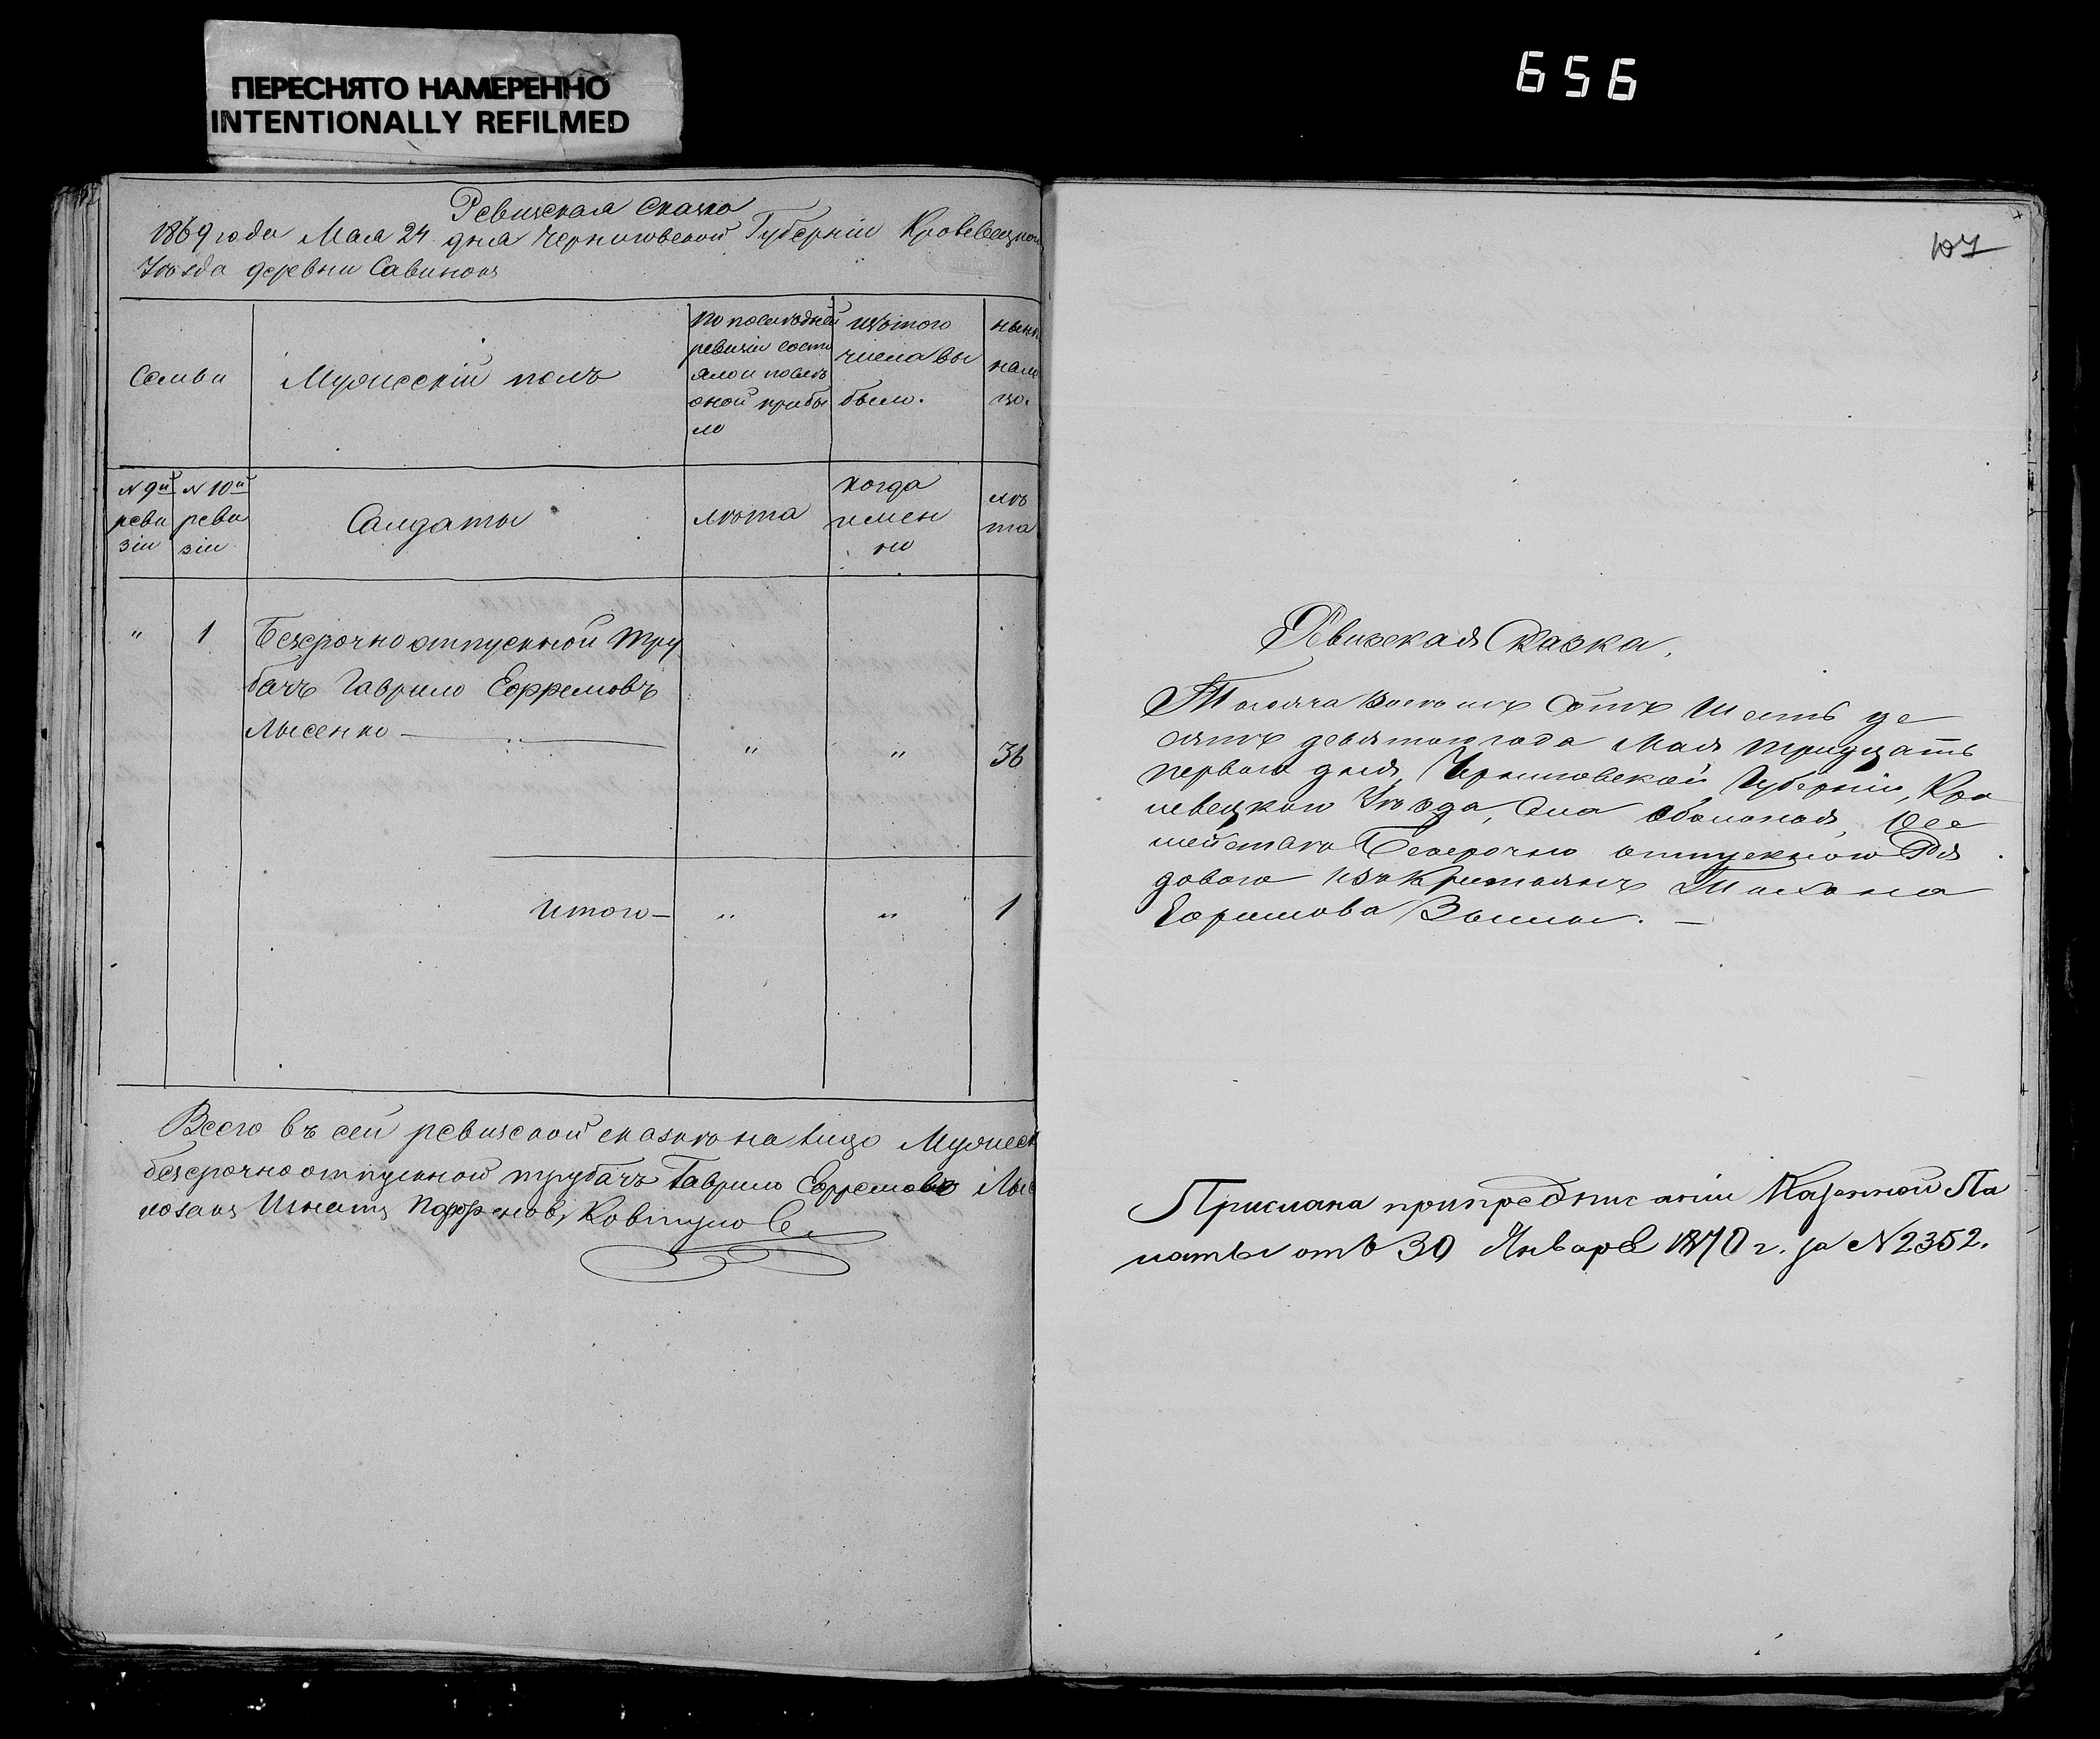 ПЕРЕСНЯТО НАМЕРЕННО
INTENTIONALLY REFILMED
656
Ревизская Сказка
1869 года Мая 24 дня Черниговской Губерніи Кролевецкого
Уѣзда деревни Савинокъ
Семьи
Мужескій полъ
По послѣдней
ревизіи состо
яло и послѣ
оной прибы
ло
изътого
числа вы
было.
нынѣ
нали
цо.
№ 9й
реви
зіи
№ 10й
реви
зіи
Салдаты
лѣта
когда
имен
но
лѣ
та
" 1 Безсрочноотпускной тру
бачъ Гаврило Ефремовъ
Лысенко — " " 36
Итого — " " 1
Всего въ сей ревизской сказкѣ на лицо Мужеск
безсрочноотпускной трубачъ Гаврило Ефремовъ Лыс
козакъ Игнатъ Парфеновъ
107
Ревизская Сказка.
Тысяча Восемь Сотъ Шесть де
сятъ девятого года Мая тридцать
первого дня, Черниговской Губерніи, Кро
левецкого Уѣзда, Села Оболонья,
Безсрочно отпускного Ря
дового изъ Крестьянъ Тихона
Ефимова
Прислана припредписаніи Казенной Па
латы отъ 30 Января 1870 г. за № 2352.